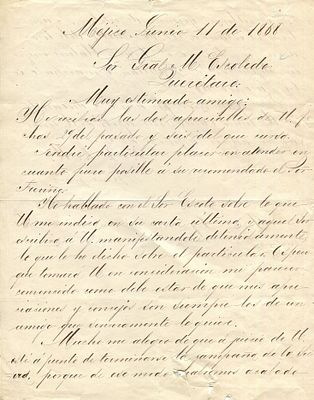 Méjico Junio 11 de 1868
Sor Gral M. Escobedo
Querétaro.
Muy estimado amigo:
He recibido las dos apreciables de U. f
chas 7 del pasado y seis del que cursa.
Tendré particular placer en atender en
cuanto pueda posible á su recomendado el Sor
He hablado con el Sor sobre lo que
U me indicó en su carta última, y aquel Ser
escribirá á U. manifestándole detenidamente
lo que le he dicho sobre el particular. Espero
que tomará U en consideración mi parecer
convencido como debe estar de que mis apre
ciaciones y consejos son siempre los de un
amigo que sinceramente lo quiere.
Mucho me alegro de que á juicio de U.
esté á punto de terminarse la campaña de la Sie
rra, porque de ese modo habremos acabado